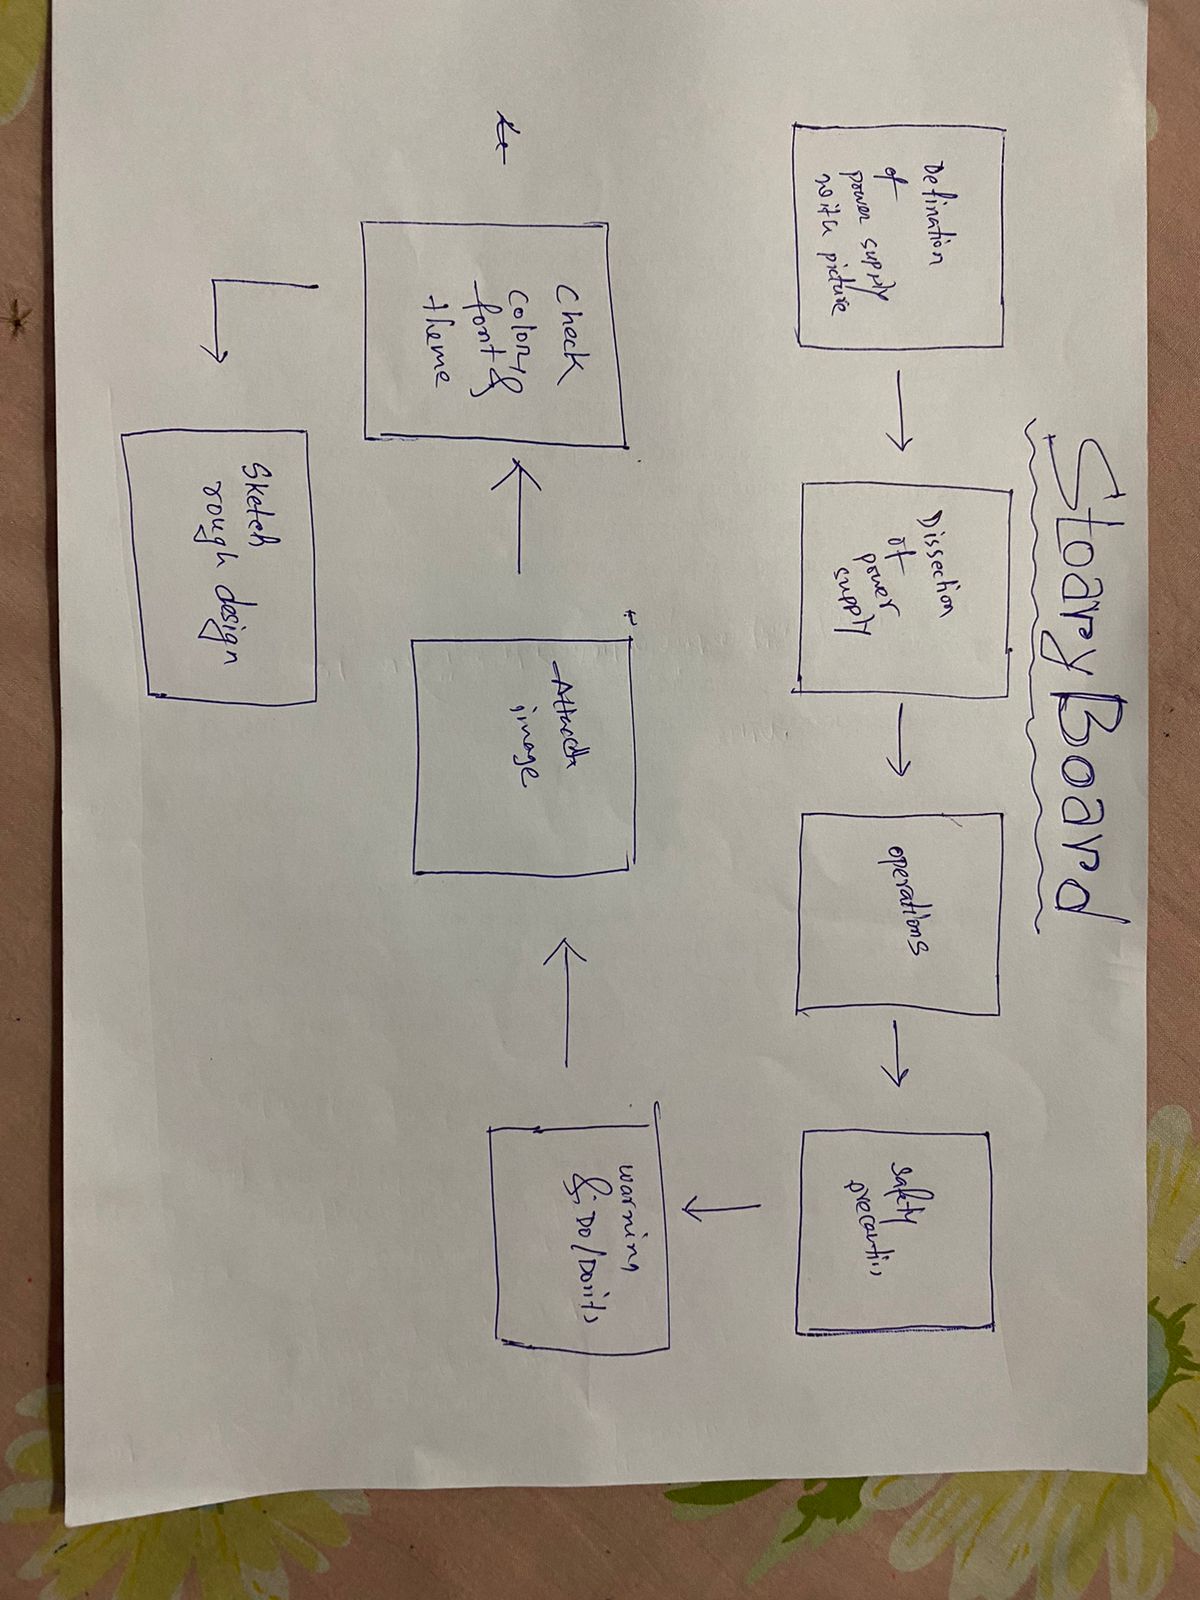 Stoary Board
Defination
of
power supply
with picture
Dissection
of
power
supply
operations
safety
warning
& Do/Donits
Attach
image
Check
color &
font &
theme
Sketch
rough design